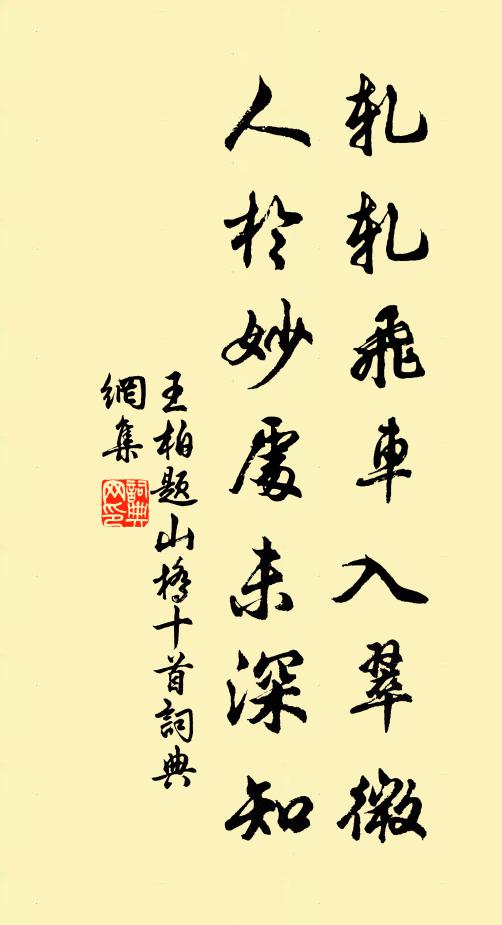 軋軋飛車入翠微
人於妙處未深知
王柏題山橋十首詞典
網集
詞典網印